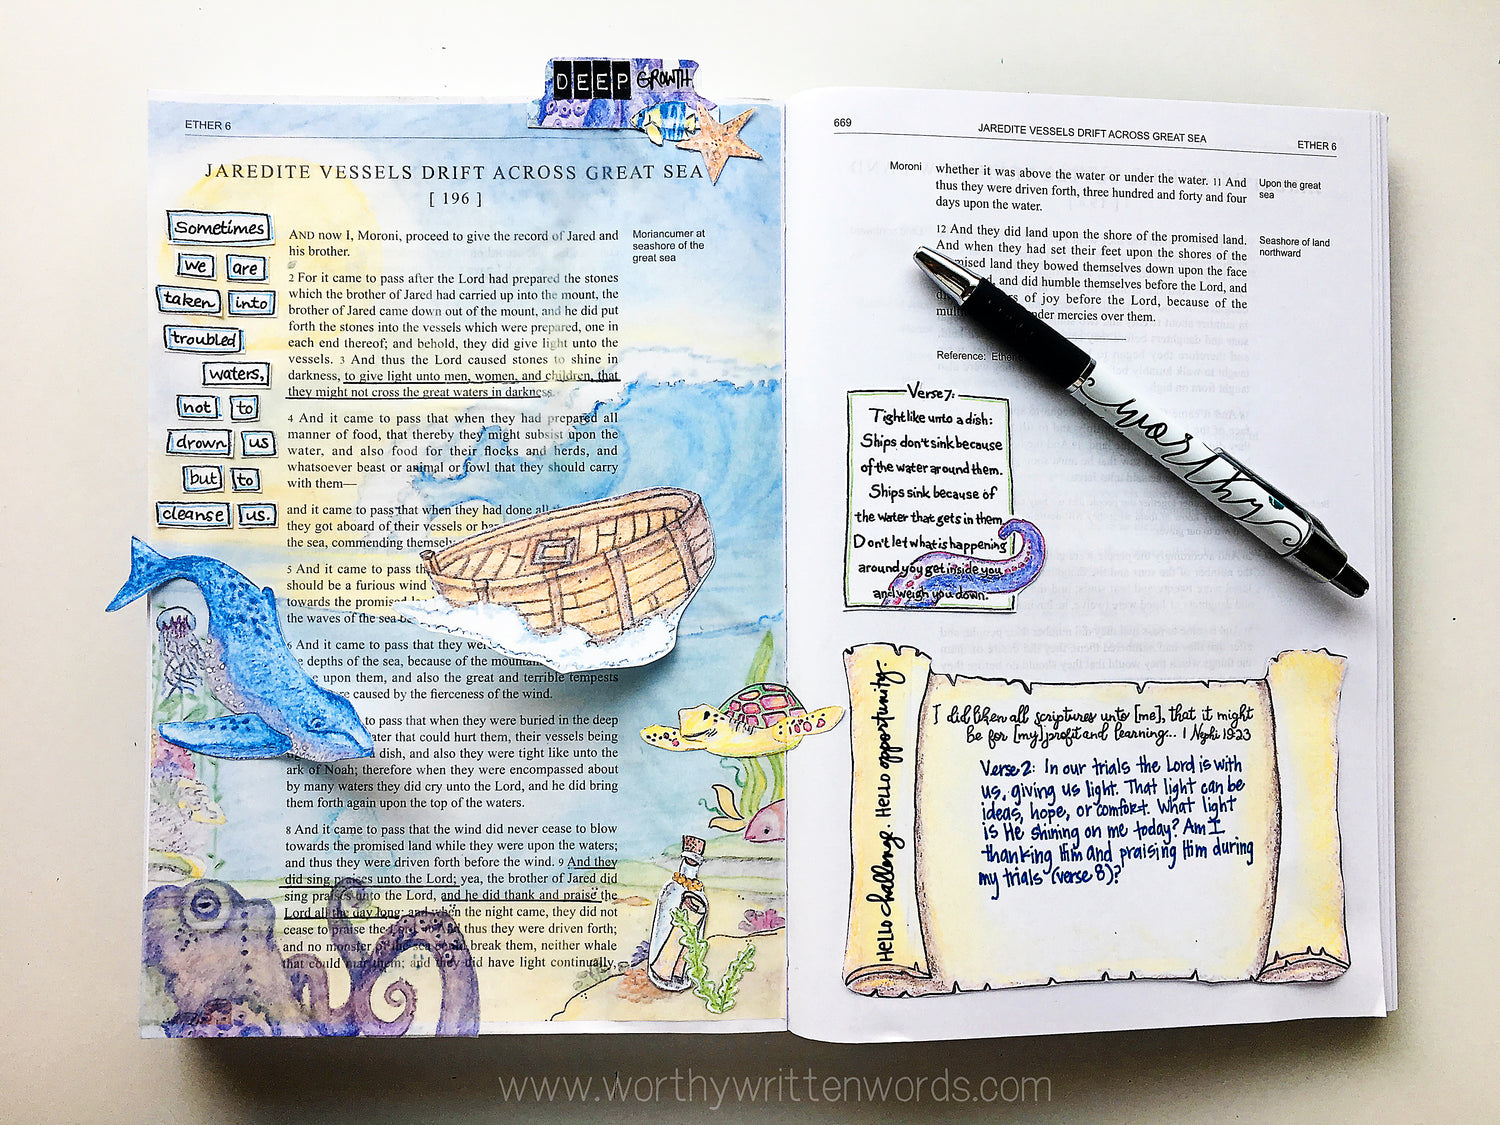 DEEP GROWTH
ETHER 6
JAREDITE VESSELS DRIFT ACROSS GREAT SEA
[ 196 ]
Sometimes
we are
taken into
troubled
waters,
not to
drown us
but to
cleanse us.
AND now I, Moroni, proceed to give the record of Jared and
his brother.
Moriancumer at
seashore of the
great sea
2 For it came to pass after the Lord had prepared the stones
which the brother of Jared had carried up into the mount, the
brother of Jared came down out of the mount, and he did put
forth the stones into the vessels which were prepared, one in
each end thereof; and behold, they did give light unto the
vessels. 3 And thus the Lord caused stones to shine in
darkness, to give light unto men, women, and children, that
they might not cross the great waters in darkness.
4 And it came to pass that when they had prepared all
manner of food, that thereby they might subsist upon the
water, and also food for their flocks and herds, and
whatsoever beast or animal or fowl that they should carry
with them—
and it came to pass that when they had done all
they got aboard of their vessels or
the sea, commending
5 And it came to pass
should be a furious wind
towards the
the waves of the sea
6 And it came to pass that they
depths of the sea, because of the
upon them, and also the great and terrible tempests
caused by the fierceness of the wind.
to pass that when they were buried in the deep
that could hurt them, their vessels being
dish, and also they were tight like unto the
ark of Noah; therefore when they were encompassed about
by many waters they did cry unto the Lord, and he did bring
them forth again upon the top of the waters.
8 And it came to pass that the wind did never cease to blow
towards the promised land while they were upon the waters;
and thus they were driven forth before the wind. 9 And they
did sing praises unto the Lord; yea, the brother of Jared did
sing praises unto the Lord, and he did thank and praise the
Lord all the day long; and when the night came, they did not
cease to praise the Lord. 10 And thus they were driven forth;
and no monster of the sea could break them, neither whale
that could mar them; and they did have light continually,
669
JAREDITE VESSELS DRIFT ACROSS GREAT SEA
ETHER 6
Moroni
whether it was above the water or under the water. 11 And
thus they were driven forth, three hundred and forty and four
days upon the water.
Upon the great
sea
12 And they did land upon the shore of the promised land.
And when they had set their feet upon the shores of the
land they bowed themselves down upon the face
and did humble themselves before the Lord, and
of joy before the Lord, because of the
mercies over them.
Seashore of land
northward
Reference:
Verse 7:
Tight like unto a dish:
Ships don't sink because
of the water around them.
Ships sink because of
the water that gets in them.
Don't let what is happening
around you get inside you
and weigh you down.
worthy
Hello challenge. Hello opportunity.
I did liken all scriptures unto [me], that it might
be for [my] profit and learning... 1 Nephi 19:23
Verse 2: In our trials the Lord is with
us, giving us light. That light can be
ideas, hope, or comfort. What light
is He shining on me today? Am I
thanking Him and praising Him during
my trials (verse 8)?
www.worthywrittenwords.com